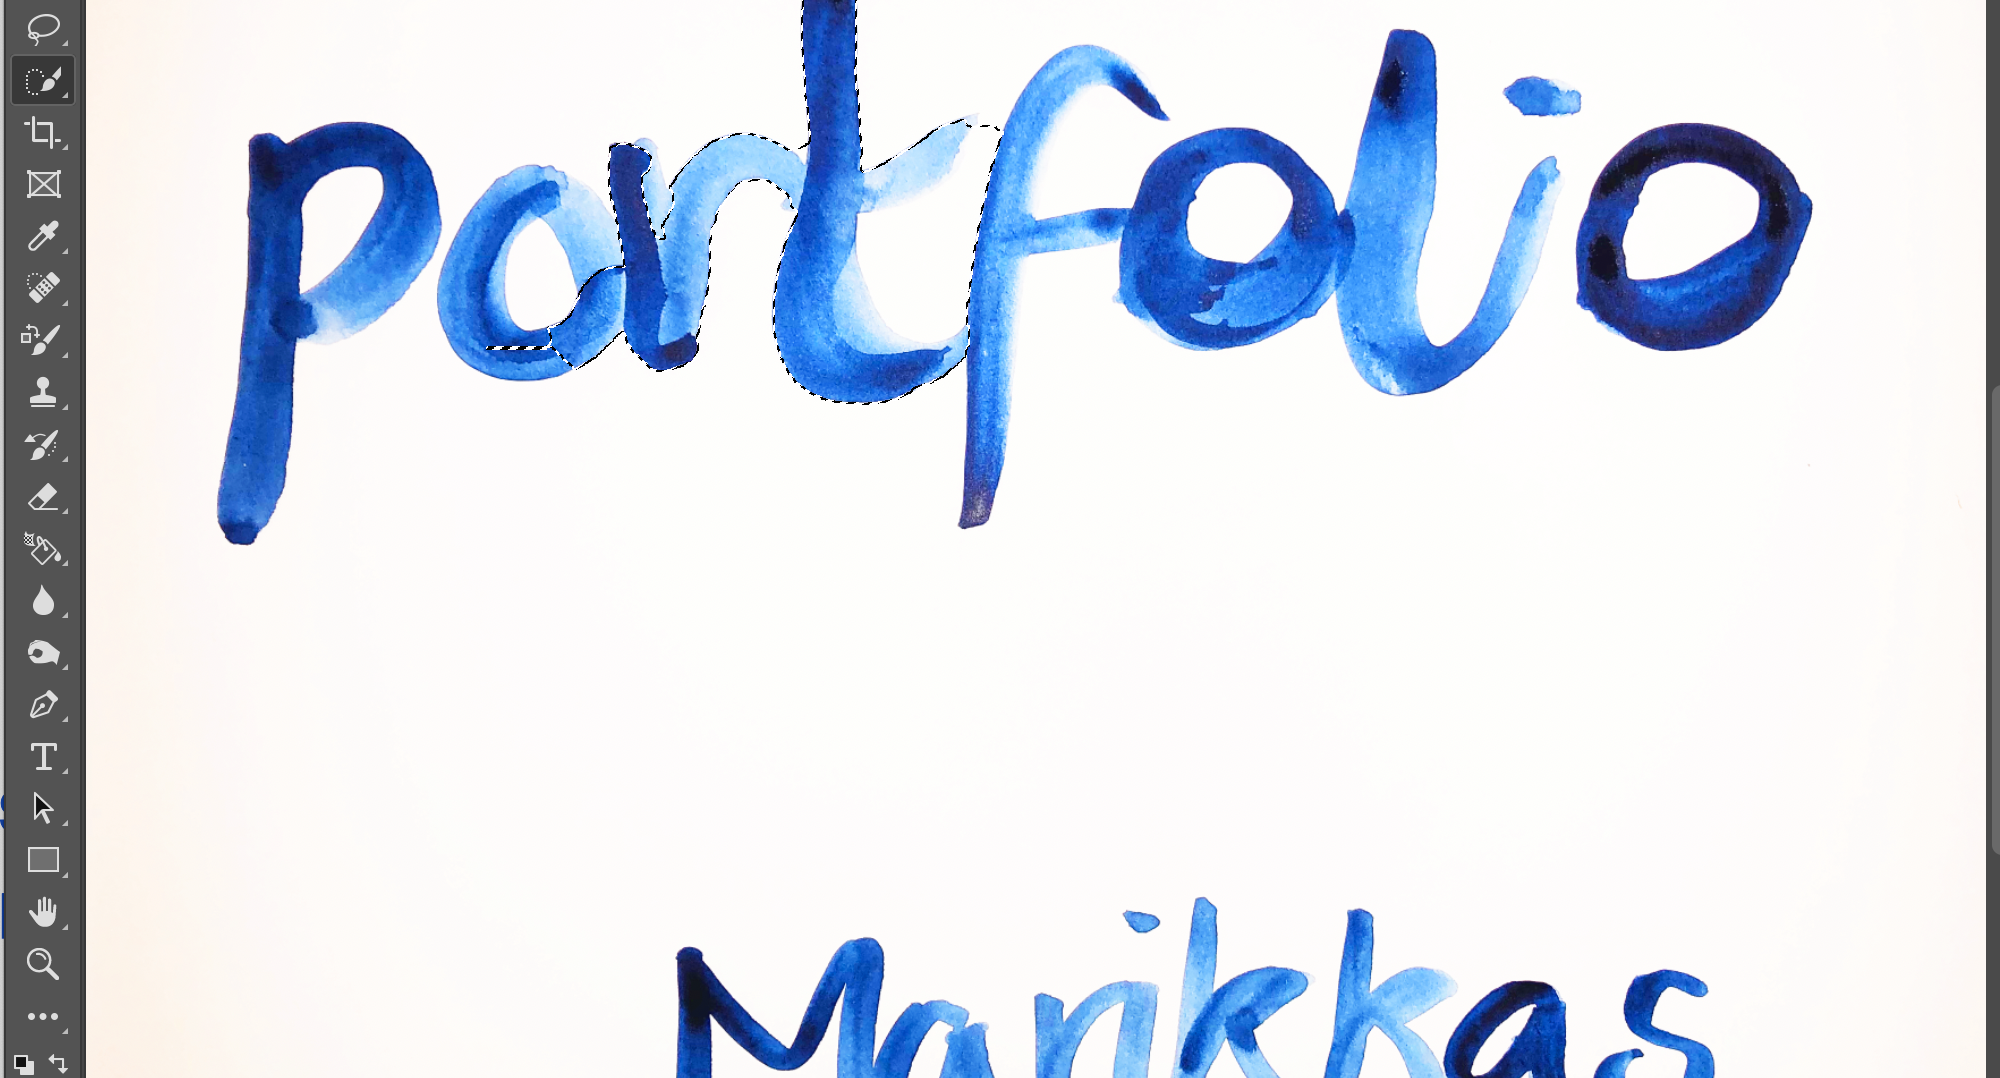 portfolio
Marikkas